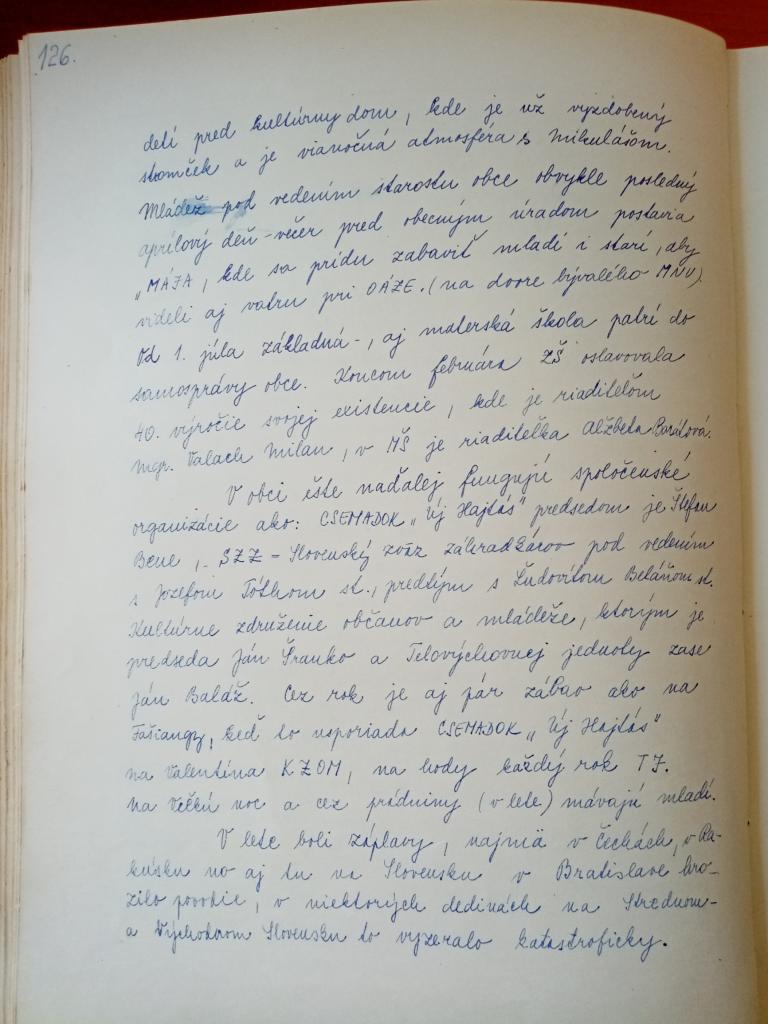 126.
detí pred kultúrny dom, kde je už vyzdobený
stromček a je vianočná atmosféra s Mikulášom.
Mládež pod vedením starostu obce obvykle posledný
aprílový deň-večer pred obecným úradom postavia
„MÁJA, kde sa prídu zabaviť mladí i starí, aby
videli aj vatru pri OÁZE. (na dvore bývalého MNV).
Od 1. júla základná-, aj materská škola patrí do
samosprávy obce. Koncom februára ZŠ oslavovala
40. výročie svojej existencie, kde je riaditeľom
Mgr. Valach Milan, v MŠ je riaditeľka Alžbeta Barátová.
V obci ešte naďalej fungujú spoločenské
organizácie ako: CSEMADOK „Új Hajtás" predsedom je Štefan
Bene, SZZ - Slovenský zväz záhradkárov pod vedením
s Jozefom Tóthom st., predtým s Ľudovítom Beláňom st.
Kultúrne združenie občanov a mládeže, ktorým je
predseda Ján Šranko a Telovýchovnej jednoty zase
Ján Baláž. Cez rok je aj pár zábav ako na
Fašiangy, keď to usporiada CSEMADOK „Új Hajtás"
na Valentína KZOM, na hody každý rok TJ.
na Veľkú noc a cez prázdniny (v lete) mávajú mladí.
V lete boli záplavy, najmä v Čechách, v Ra-
kúsku no aj tu na Slovensku v Bratislave hro-
zilo povodie, v niektorých dedinách na Strednom-
a Východnom Slovensku to vyzeralo katastroficky.